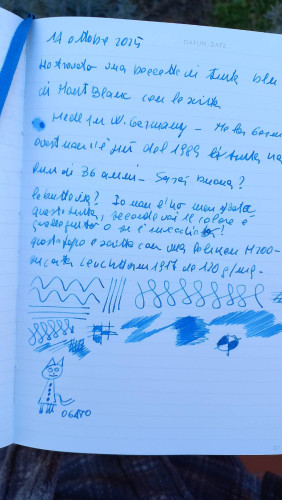 DATUM/DATE
14 ottobre 2025
Ho trovato una boccetta di Tink blu
di Mont Blanc con la scritta
Made in W. Germany - Ma la Germ
ovest non c'è più dal 1989
più di 36 anni - Sarà buona?
la butto via? Io non
questa tinta, secondo voi il colore è
quello giusto o si è invecchiato?
questa pagina è scritta con una Pelikan M200 -
su carta Leuchtturm 1917 da 120 g/mq -
OGATO